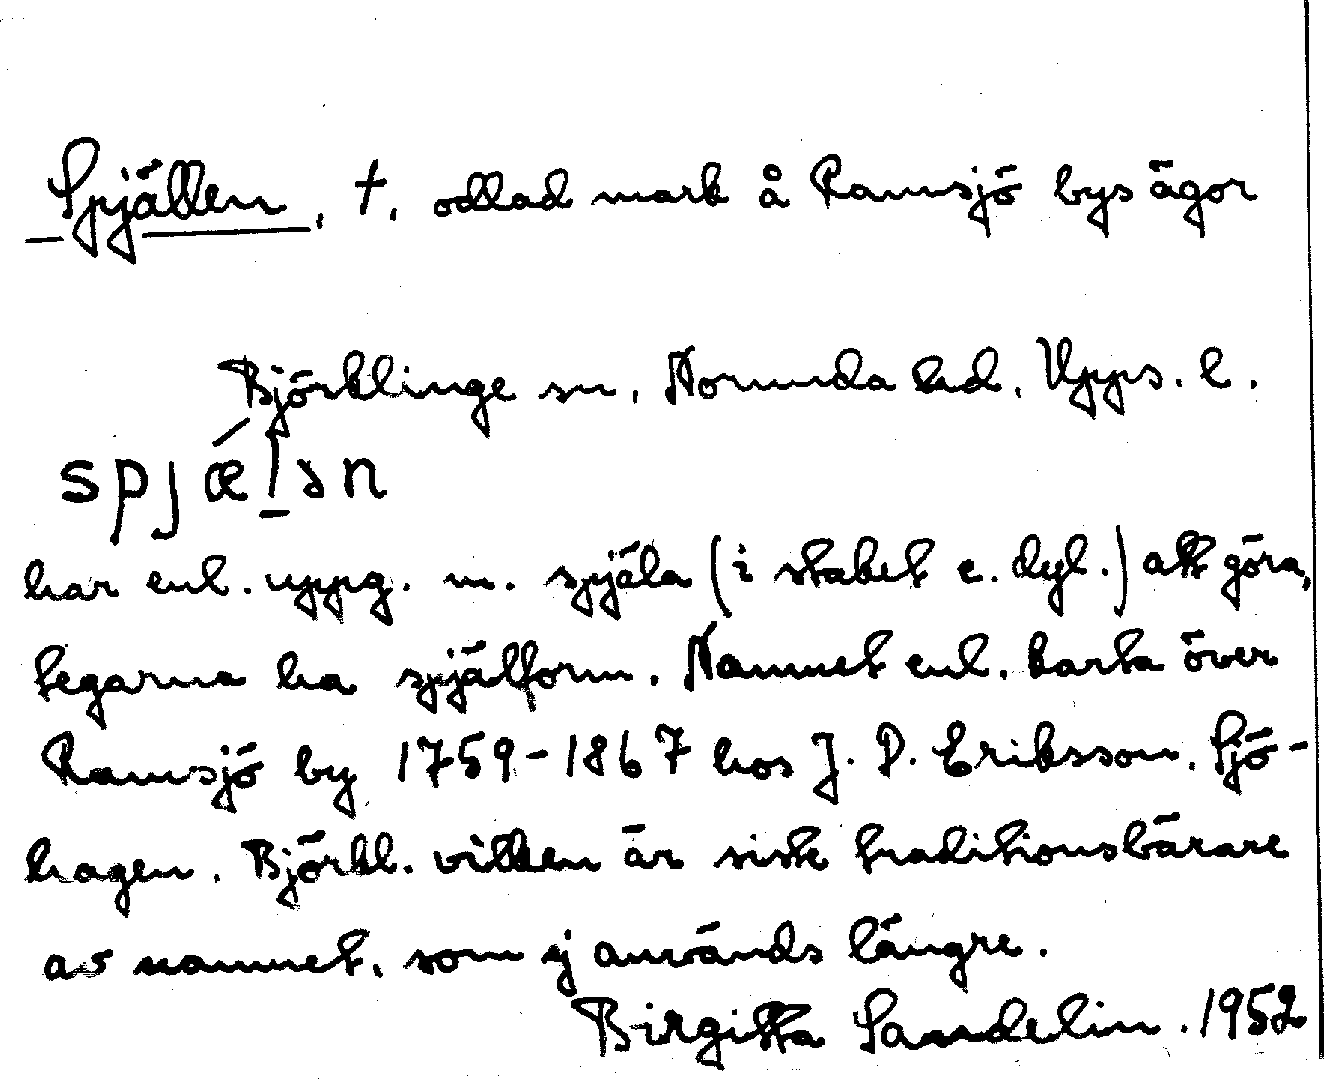 Spjällen, †, odlad mark å Ramsjö bys ägor
Björklinge sn, Norunda hd. Upps. l.
spjæ̍l̠ən
har enl. uppg. m. spjäla (i staket e. dyl.) att göra,
tegarna ha spjälform. Namnet enl. karta över
Ramsjö by 1759-1867 hos J. P. Eriksson. Sjö-
hagen. Björkl. vilken är siste traditionsbärare
av namnet, som ej används längre.
Birgitta Sandelin. 1952